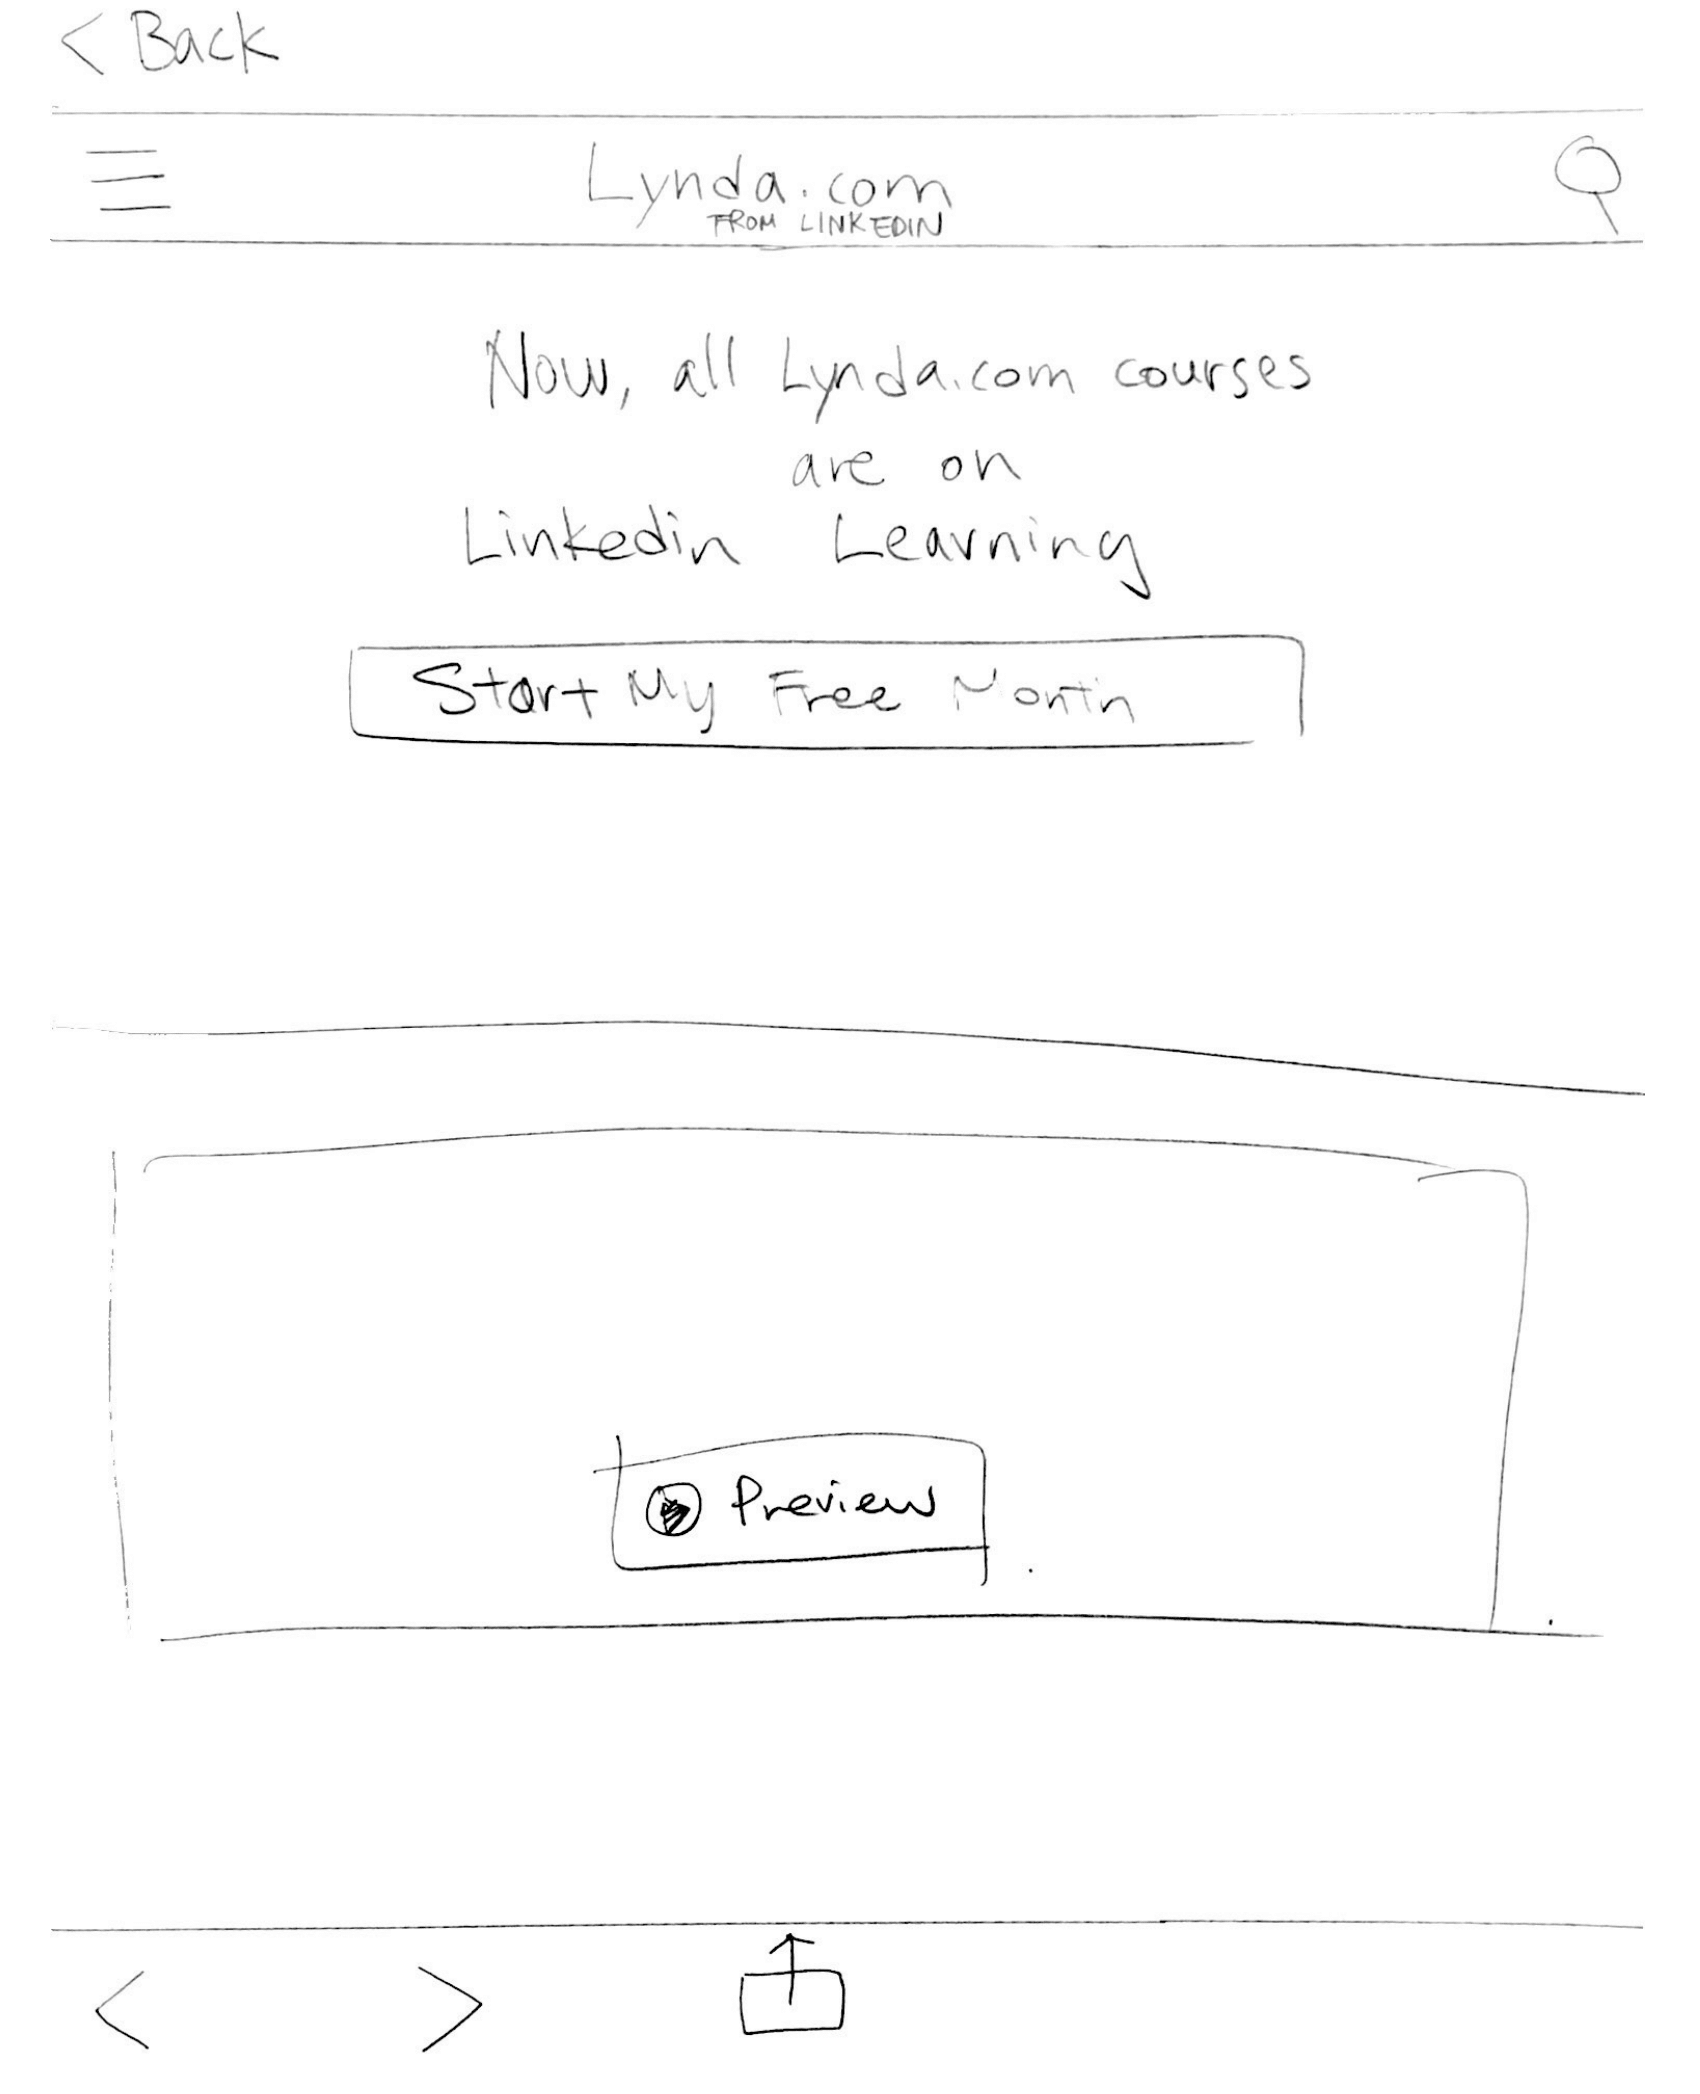 < Back
Lynda.com
FROM LINKEDIN
Now, all Lynda.com courses
are on
Linkedin Learning
Start My Free Month
Preview